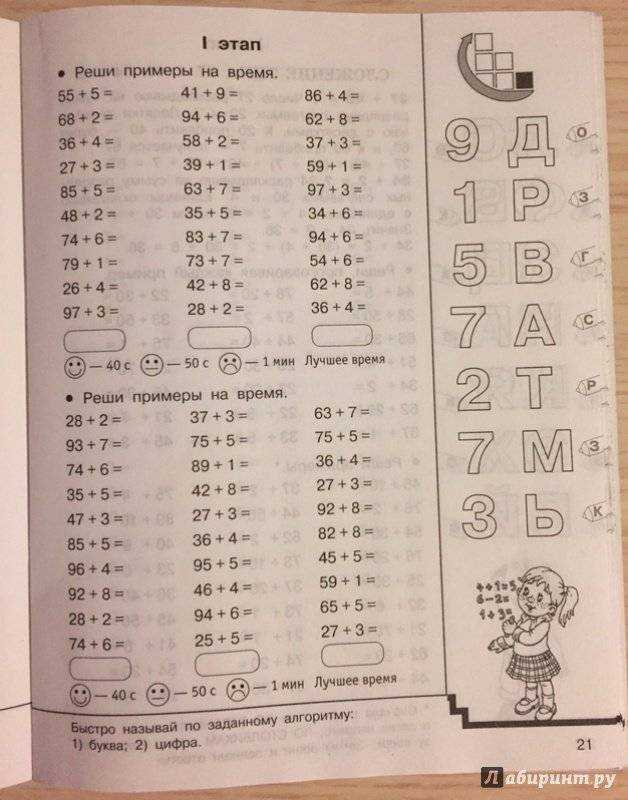 I этап
• Реши примеры на время.
55 + 5 = 41 + 9 = 86 + 4 =
68 + 2 = 94 + 6 = 62 + 8 =
36 + 4 = 58 + 2 = 37 + 3 =
27 + 3 = 39 + 1 = 59 + 1 =
85 + 5 = 63 + 7 = 97 + 3 =
48 + 2 = 35 + 5 = 34 + 6 =
74 + 6 = 83 + 7 = 94 + 6 =
79 + 1 = 73 + 7 = 54 + 6 =
26 + 4 = 42 + 8 = 62 + 8 =
97 + 3 = 28 + 2 = 36 + 4 =
— 40 с — 50 с — 1 мин Лучшее время
• Реши примеры на время.
28 + 2 = 37 + 3 = 63 + 7 =
93 + 7 = 75 + 5 = 75 + 5 =
74 + 6 = 89 + 1 = 36 + 4 =
35 + 5 = 42 + 8 = 27 + 3 =
47 + 3 = 27 + 3 = 92 + 8 =
85 + 5 = 36 + 4 = 82 + 8 =
96 + 4 = 95 + 5 = 45 + 5 =
92 + 8 = 46 + 4 = 59 + 1 =
28 + 2 = 94 + 6 = 65 + 5 =
74 + 6 = 25 + 5 = 27 + 3 =
— 40 с — 50 с — 1 мин Лучшее время
Быстро называй по заданному алгоритму:
1) буква; 2) цифра.
9 Д О
1 Р З
5 В Г
7 А С
2 Т Р
7 М З
3 Ь К
4+1=5
6-2=
1+3=
21
Лабиринт.ру